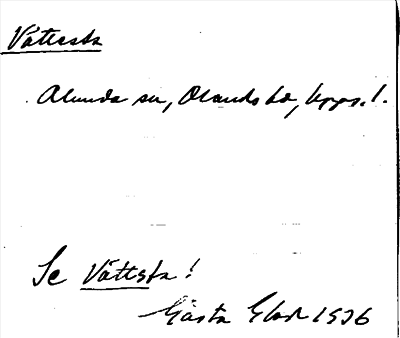 Vättesta
Alunda sn, Olands hd, Upps. l.
Se Vättsta!
Gösta Elod 1936